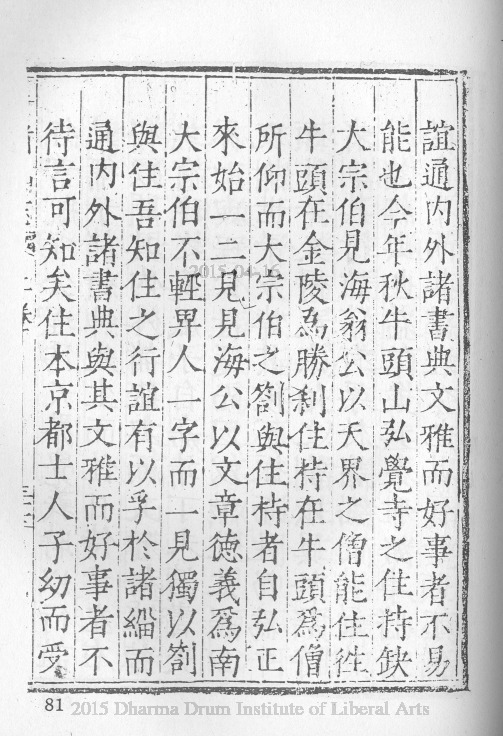 誼通内外諸書典文雅而好事者不易
能也今年秋牛頭山弘覺寺之住持缺
大宗伯見海翁公以天界之僧能住徃
牛頭在金陵為勝剎住持在牛頭爲僧
所仰而大宗伯之劄與住持者自弘正
來始一二見見海公以文章德義爲南
大宗伯不輕畀人一字而一見獨以劄
與住吾知住之行誼有以孚於諸緇而
通内外諸書典與其文雅而好事者不
待言可知矣住本京都士人子幼而受
2015-04-16
81 2015 Dharma Drum Institute of Liberal Arts